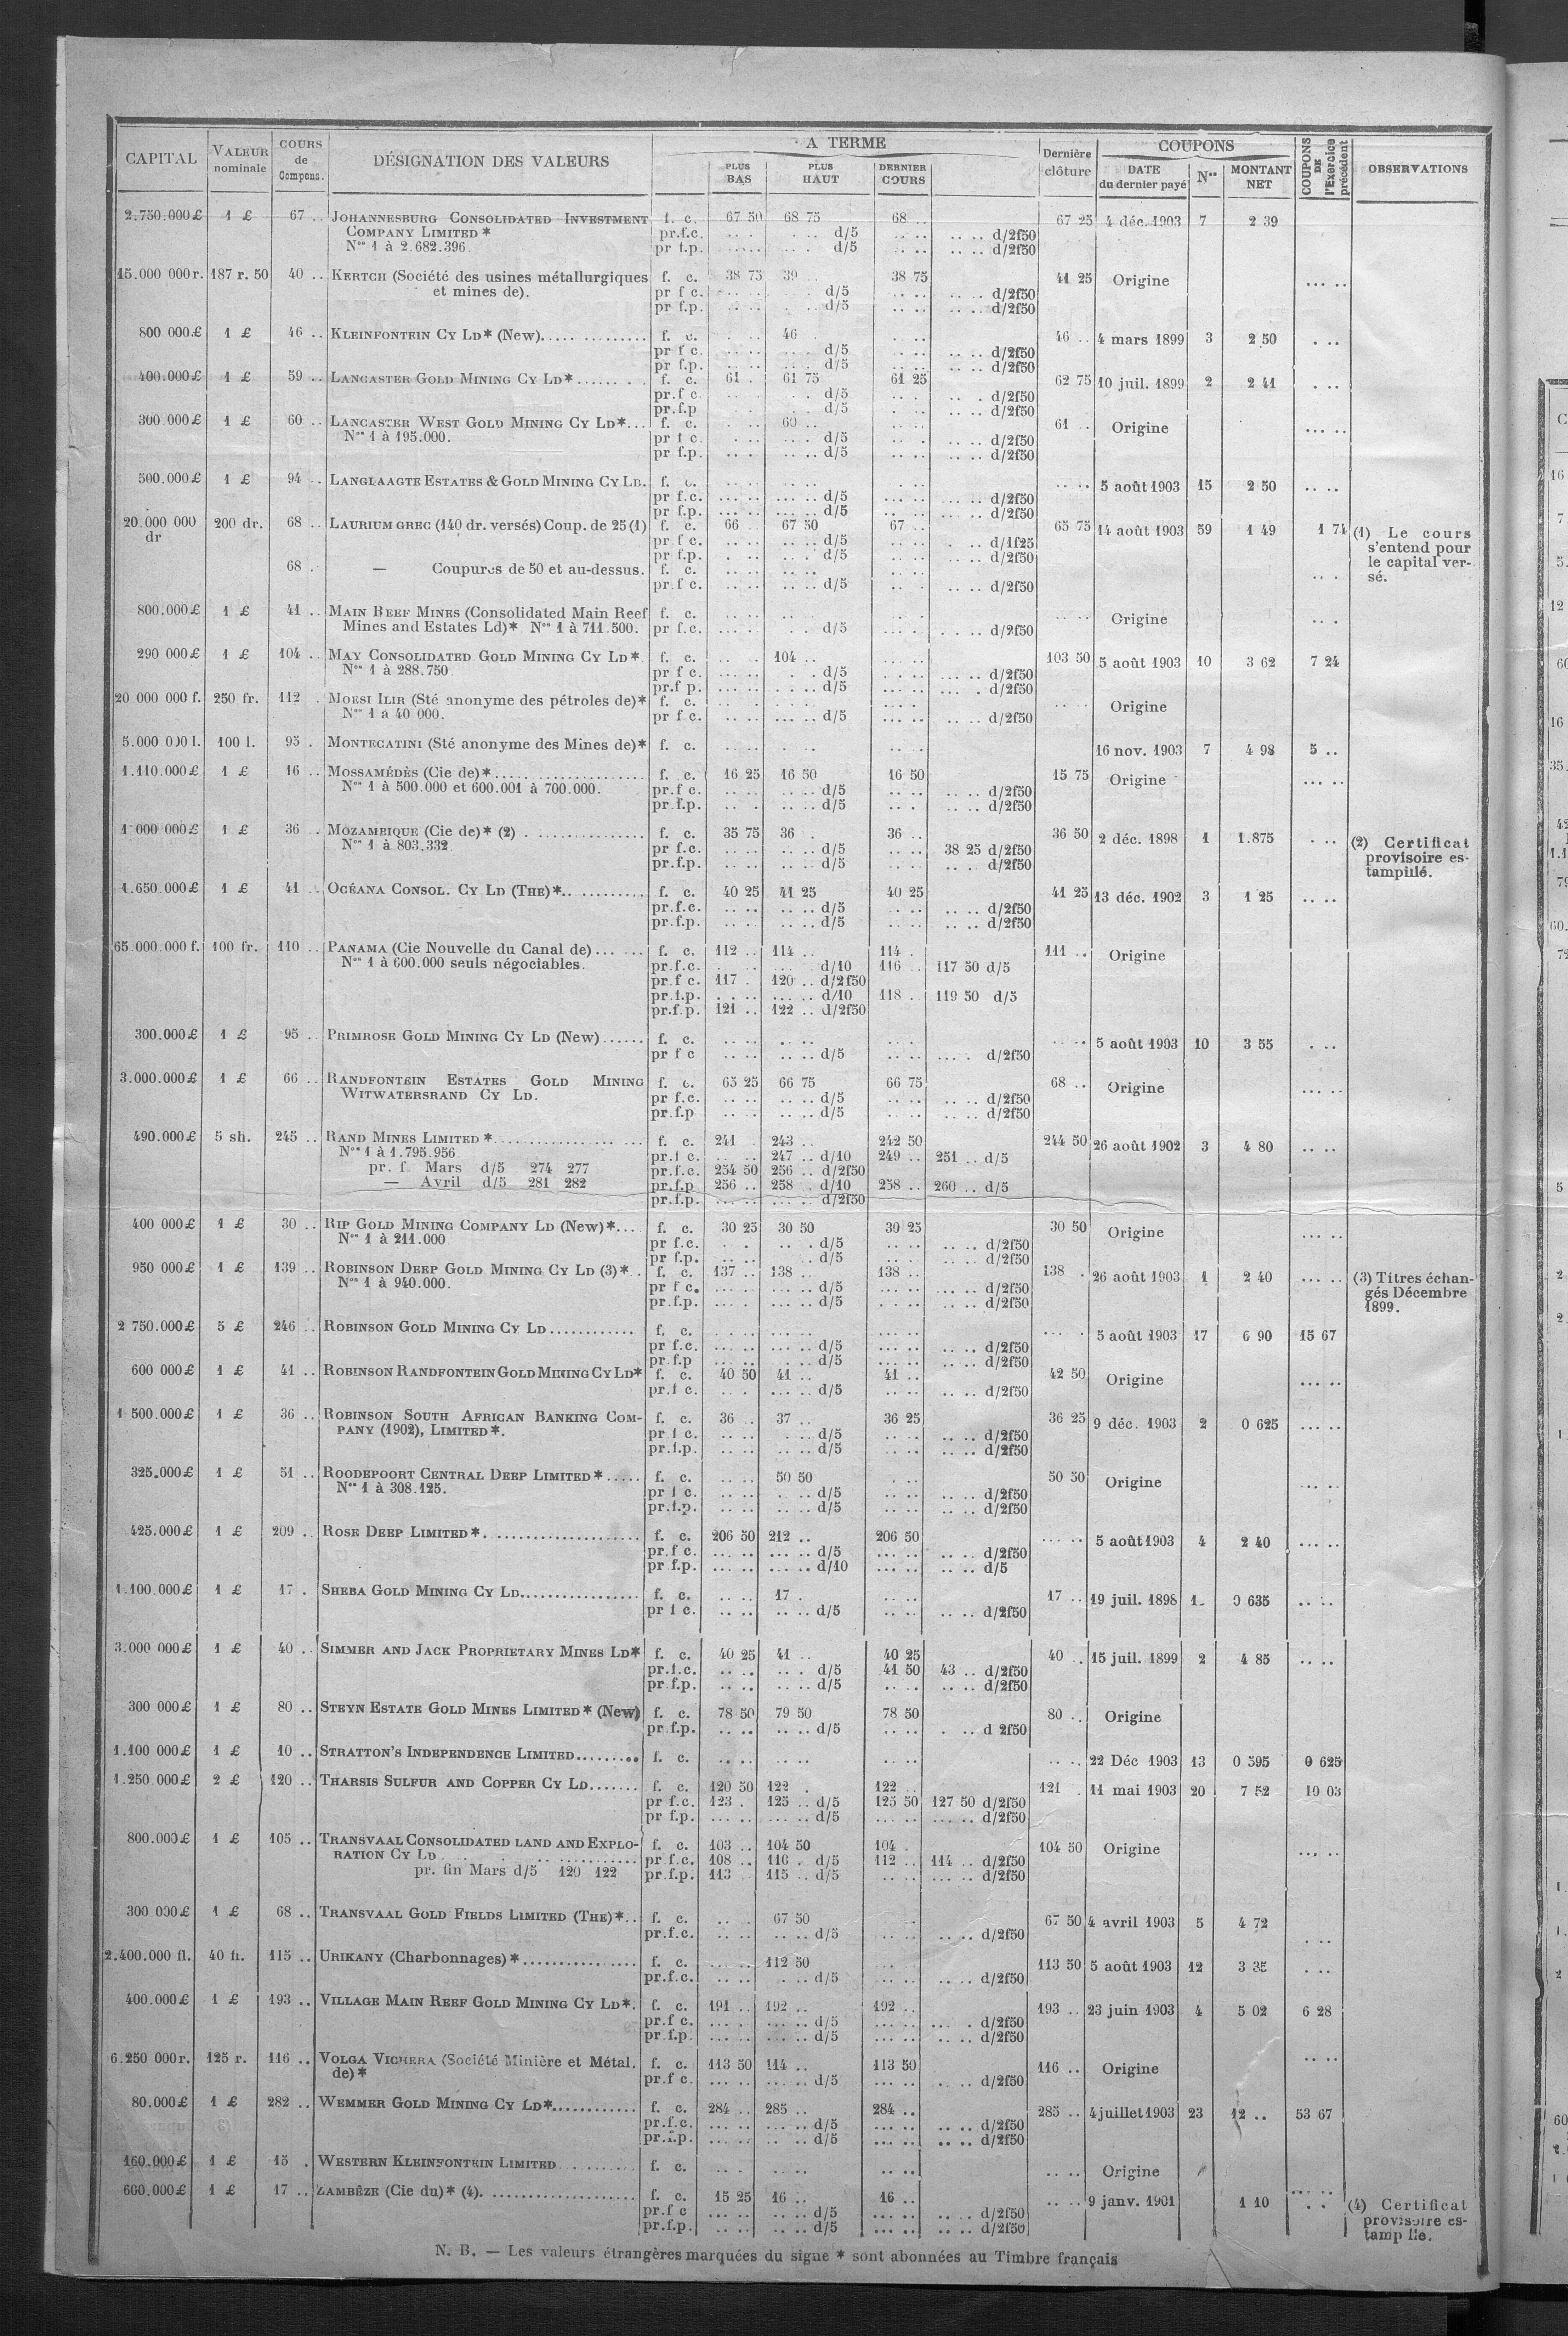 CAPITAL | VALEUR nominale | COURS de Compens. | DÉSIGNATION DES VALEURS | A TERME | PLUS BAS | PLUS HAUT | DERNIER COURS | Dernière clôture | COUPONS | DATE du dernier payé | Nos | MONTANT NET | COUPONS DE l'Exercice précédent | OBSERVATIONS
2.750.000£ 1 £ 67 .. JOHANNESBURG CONSOLIDATED INVESTMENT f. c. 67 50 68 75 68 .. 67 25 4 déc. 1903 7 2 39
COMPANY LIMITED * pr.f.c. .. .. d/5 .. .. d/2f50
Nos 1 à 2.682.396. pr f.p. .. .. d/5 .. .. d/2f50
15.000 000 r. 187 r. 50 40 .. KERTCH (Société des usines métallurgiques f. c. 38 75 39 .. 38 75 41 25 Origine ... ..
et mines de). pr f c. .. .. d/5 .. .. d/2f50
pr f.p. .. .. d/5 .. .. d/2f50
800 000£ 1 £ 46 .. KLEINFONTEIN CY LD* (New) f. c. 46 . 46 .. 4 mars 1899 3 2 50
pr f c. .. .. d/5 .. .. d/2f50
pr f.p. .. .. d/5 .. .. d/2f50
400.000£ 1 £ 59 .. LANCASTER GOLD MINING CY LD* f. c. 61 . 61 75 61 25 62 75 10 juil. 1899 2 2 41
pr.f c. .. .. d/5 .. .. d/2f50
pr.f.p .. .. d/5 .. .. d/2f50
300.000£ 1 £ 60 .. LANCASTER WEST GOLD MINING CY LD* f. c. 60 .. 61 .. Origine ... ..
Nos 1 à 195.000. pr f c. .. .. d/5 .. .. d/2f50
pr f.p. .. .. d/5 .. .. d/2f50
500.000£ 1 £ 94 .. LANGLAAGTE ESTATES & GOLD MINING CY LD. f. c. 5 août 1903 15 2 50 .. ..
pr f.c. ... .. d/5 .. .. d/2f50
pr f.p. ... .. d/5 .. .. d/2f50
20.000 000 dr 200 dr. 68 .. LAURIUM GREC (140 dr. versés) Coup. de 25 (1) f. c. 66 .. 67 50 67 .. 65 75 14 août 1903 59 1 49 1 74 (1) Le cours s'entend pour le capital versé.
pr.f c. .. .. d/5 . .. d/1f25
pr f.p. .. .. d/5 .. .. d/2f50
68 . — Coupures de 50 et au-dessus. f. c.
pr.f c. .. .. d/5 .. .. d/2f50
800.000£ 1 £ 41 .. MAIN REEF MINES (Consolidated Main Reef f. c. Origine
Mines and Estates Ld)* Nos 1 à 711.500. pr f.c. .. .. d/5 .. .. d/2f50
290 000£ 1 £ 104 .. MAY CONSOLIDATED GOLD MINING CY LD* f. c. 104 .. 103 50 5 août 1903 10 3 62 7 24
Nos 1 à 288.750 pr f c. .. .. d/5 .. .. d/2f50
pr.f p. .. .. d/5 .. .. d/2f50
20 000 000 f. 250 fr. 112 . MORSI ILIR (Sté anonyme des pétroles de)* f. c. Origine
Nos 1 à 40 000. pr f.c. .. .. d/5 .. .. d/2f50
5.000 000 l. 100 l. 95 . MONTECATINI (Sté anonyme des Mines de)* f. c. 16 nov. 1903 7 4 98 5 ..
1.110.000£ 1 £ 16 .. MOSSAMÉDÈS (Cie de)* f. c. 16 25 16 50 16 50 15 75 Origine ... ..
Nos 1 à 500.000 et 600.001 à 700.000. pr.f c. .. .. d/5 .. .. d/2f50
pr.f.p. .. .. d/5 .. .. d/2f50
1 000 000£ 1 £ 36 .. MOZAMBIQUE (Cie de)* (2) f. c. 35 75 36 . 36 .. 36 50 2 déc. 1898 1 1.875 . .. (2) Certificat provisoire estampillé.
Nos 1 à 803.332 pr f.c. .. .. d/5 38 25 d/2f50
pr.f.p. .. .. d/5 .. .. d/2f50
1.650.000£ 1 £ 41 .. OCÉANA CONSOL. CY LD (THE)* f. c. 40 25 41 25 40 25 41 25 13 déc. 1902 3 1 25 .. ..
pr.f.c. .. .. d/5 .. .. d/2f50
pr.f.p. .. .. d/5 .. .. d/2f50
65.000.000 f. 100 fr. 110 .. PANAMA (Cie Nouvelle du Canal de) f. c. 112 .. 114 .. 114 . 111 .. Origine
Nos 1 à 600.000 seuls négociables. pr.f.c. ... .. d/10 116 .. 117 50 d/5
pr.f c. 117 . 120 .. d/2f50
pr.f.p. ... .. d/10 118 . 119 50 d/5
pr.f.p. 121 .. 122 .. d/2f50
300.000£ 1 £ 95 . PRIMROSE GOLD MINING CY LD (New) f. c. 5 août 1903 10 3 55 . ..
pr f c .. .. d/5 .. . d/2f50
3.000.000£ 1 £ 66 .. RANDFONTEIN ESTATES GOLD MINING f. c. 65 25 66 75 66 75 68 .. Origine ... ..
WITWATERSRAND CY LD. pr f.c. .. .. d/5 .. .. d/2f50
pr.f.p .. .. d/5 .. .. d/2f50
490.000£ 5 sh. 245 .. RAND MINES LIMITED * f. c. 241 . 243 .. 242 50 244 50 26 août 1902 3 4 80 .. ..
Nos 1 à 1.795.956 pr.f c. .. .. 247 .. d/10 249 .. 251 .. d/5
pr. f. Mars d/5 274 277 pr.f.c. 254 50 256 .. d/2f50
— Avril d/5 281 282 pr.f.p 256 .. 258 .. d/10 258 .. 260 .. d/5
pr.f.p. ... .. d/2f50
400 000£ 1 £ 30 .. RIP GOLD MINING COMPANY LD (New)* f. c. 30 25 30 50 30 25 30 50 Origine ... ..
Nos 1 à 211.000 pr f.c. .. .. d/5 .. .. d/2f50
pr f.p. .. .. d/5 .. .. d/2f50
950 000£ 1 £ 139 .. ROBINSON DEEP GOLD MINING CY LD (3)* f. c. 137 .. 138 .. 138 .. 138 . 26 août 1903 1 2 40 ... .. (3) Titres échangés Décembre 1899.
Nos 1 à 940.000. pr f c. ... .. d/5 .. .. d/2f50
pr.f.p. ... .. d/5 .. .. d/2f50
2 750.000£ 5 £ 246 .. ROBINSON GOLD MINING CY LD f. c. 5 août 1903 17 6 90 15 67
pr f.c. ... .. d/5 .. .. d/2f50
pr.f.p .. .. d/5 .. .. d/2f50
600 000£ 1 £ 41 .. ROBINSON RANDFONTEIN GOLD MINING CY LD* f. c. 40 50 41 .. 41 .. 42 50 Origine ... ..
pr.f c. ... .. d/5 .. .. d/2f50
1 500.000£ 1 £ 36 .. ROBINSON SOUTH AFRICAN BANKING COM- f. c. 36 .. 37 .. 36 25 36 25 9 déc. 1903 2 0 625 ... ..
PANY (1902), LIMITED*. pr f c. .. .. d/5 .. .. d/2f50
pr.f.p. .. .. d/5 .. .. d/2f50
325.000£ 1 £ 51 .. ROODEPOORT CENTRAL DEEP LIMITED * f. c. 50 50 50 50 Origine ... ..
Nos 1 à 308.125. pr f c. .. .. d/5 .. .. d/2f50
pr.f.p. .. .. d/5 .. .. d/2f50
425.000£ 1 £ 209 .. ROSE DEEP LIMITED * f. c. 206 50 212 .. 206 50 5 août 1903 4 2 40 ... ..
pr.f c. ... .. d/5 .. .. d/2f50
pr f.p. ... .. d/10 .. .. d/5
1.100.000£ 1 £ 17 . SHEBA GOLD MINING CY LD f. c. 17 . 17 .. 19 juil. 1898 1 0 635 .. ..
pr f c. .. .. d/5 .. .. d/2f50
3.000 000£ 1 £ 40 .. SIMMER AND JACK PROPRIETARY MINES LD* f. c. 40 25 41 .. 40 25 40 . 15 juil. 1899 2 4 85 .. ..
pr.f.c. .. .. d/5 41 50 43 .. d/2f50
pr f.p. .. .. d/5 .. .. d/2f50
300 000£ 1 £ 80 .. STEYN ESTATE GOLD MINES LIMITED * (New) f. c. 78 50 79 50 78 50 80 .. Origine
pr f.p. .. .. d/5 . .. d 2f50
1.100 000£ 1 £ 10 .. STRATTON'S INDEPENDENCE LIMITED f. c. 22 Déc 1903 13 0 595 0 625
1.250.000£ 2 £ 120 .. THARSIS SULFUR AND COPPER CY LD f. c. 120 50 122 . 122 .. 121 . 11 mai 1903 20 7 52 10 03
pr f.c. 123 . 125 .. d/5 125 50 127 50 d/2f50
pr f.p. ... .. d/5 ... .. d/2f50
800.000£ 1 £ 105 .. TRANSVAAL CONSOLIDATED LAND AND EXPLO- f. c. 103 .. 104 50 104 . 104 50 Origine ... ..
RATION CY LD pr f.c. 108 .. 110 . d/5 112 .. 114 .. d/2f50
pr. fin Mars d/5 120 122 pr.f.p. 113 115 .. d/5 ... .. d/2f50
300 000£ 1 £ 68 .. TRANSVAAL GOLD FIELDS LIMITED (THE)* f. c. 67 50 67 50 4 avril 1903 5 4 72
pr.f.c. .. .. d/5 .. .. d/2f50
2.400.000 fl. 40 fl. 115 .. URIKANY (Charbonnages) * f. c. 112 50 113 50 5 août 1903 12 3 35
pr.f.c. .. .. d/5 .. .. d/2f50
400.000£ 1 £ 193 .. VILLAGE MAIN REEF GOLD MINING CY LD*. f. c. 191 .. 192 .. 192 .. 193 .. 23 juin 1903 4 5 02 6 28
pr.f c. ... .. d/5 ... . d/2f50
pr.f.p. ... .. d/5 ... .. d/2f50
6.250 000 r. 125 r. 116 .. VOLGA VICHERA (Société Minière et Métal. f. c. 113 50 114 .. 113 50 116 .. Origine .. ..
de)* pr.f c. ... .. d/5 .. .. d/2f50
80.000£ 1 £ 282 .. WEMMER GOLD MINING CY LD* f. c. 284 .. 285 .. 284 .. 285 .. 4 juillet 1903 23 12 .. 53 67
pr.f.c. ... .. d/5 .. .. d/2f50
pr.f.p. .. .. d/5 .. .. d/2f50
160.000£ 1 £ 15 . WESTERN KLEINFONTEIN LIMITED f. c. Origine
600.000£ 1 £ 17 .. ZAMBÈZE (Cie du)* (4). f. c. 15 25 16 .. 16 .. 9 janv. 1901 1 10 .. (4) Certificat provisoire estampillé.
pr.f c ... .. d/5 .. .. d/2f50
pr.f.p. .. .. d/5 .. .. d/2f50
N. B. — Les valeurs étrangères marquées du signe * sont abonnées au Timbre français